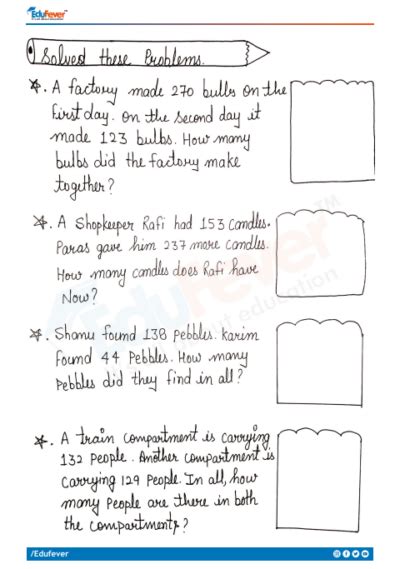 EduFever
Solved these Problems.
☆. A factory made 270 bulbs on the
first day. On the second day it
made 123 bulbs. How many
bulbs did the factory make
together?
☆. A Shopkeeper Rafi had 153 candles.
Paras gave him 237 more candles.
How many candles does Rafi have
Now?
☆. Shanu found 138 Pebbles. Karim
Found 44 Pebbles. How many
Pebbles did they find in all?
☆. A train compartment is carrying
132 People. Another compartment is
Carrying 129 People. In all, how
many People are there in both
the compartments?
EduFever
education
TM
/Edufever